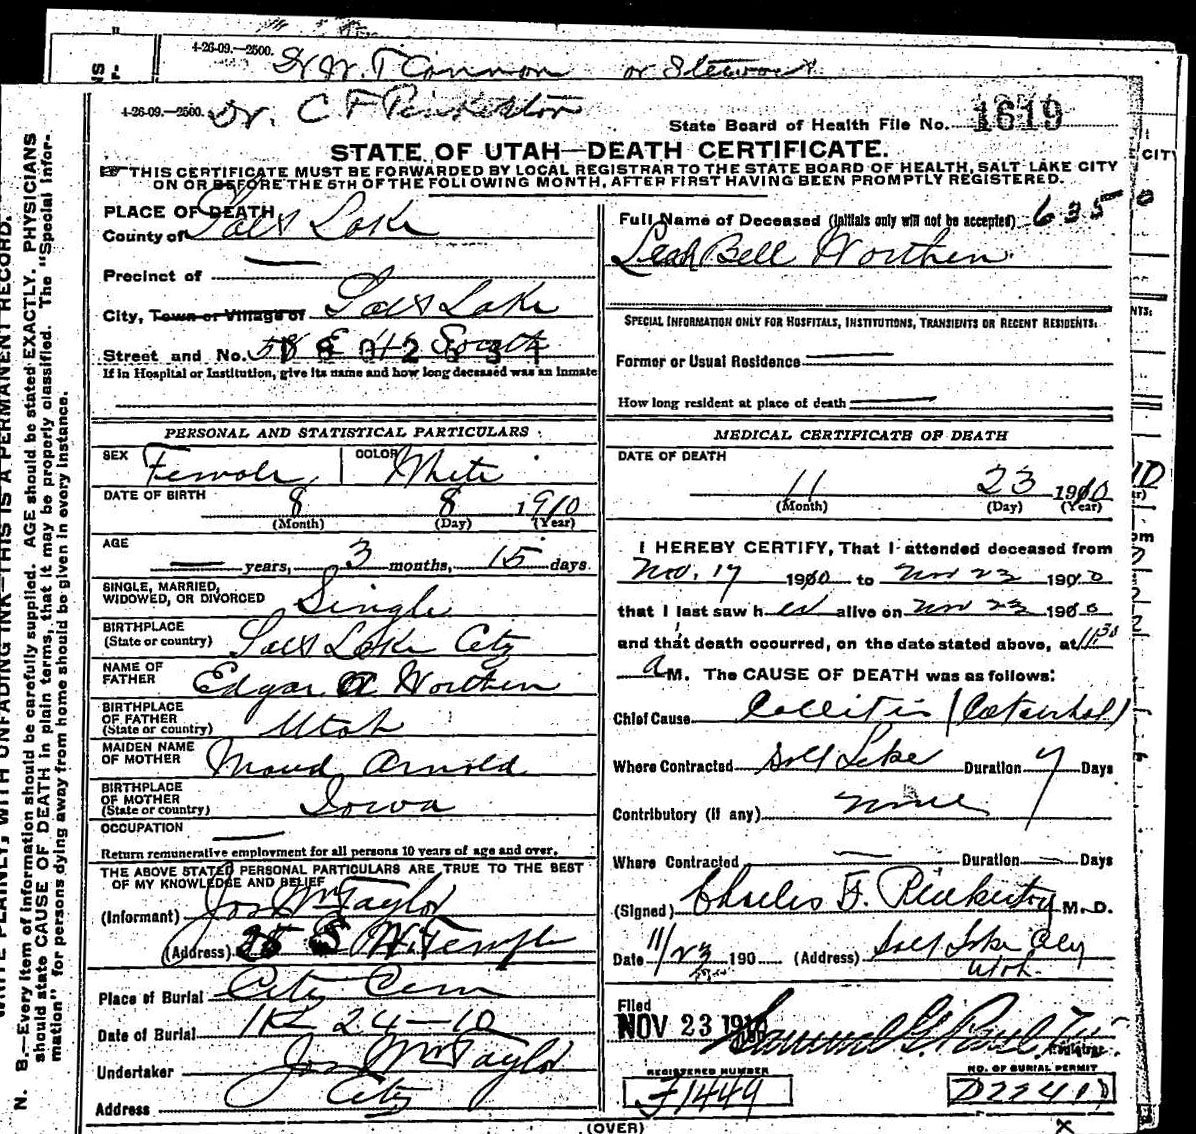 4-26-09.—2500.
or Stewart
4-26-09.—2500. Dr. C F Pinkerton
State Board of Health File No. 1619
STATE OF UTAH—DEATH CERTIFICATE.
THIS CERTIFICATE MUST BE FORWARDED BY LOCAL REGISTRAR TO THE STATE BOARD OF HEALTH, SALT LAKE CITY
ON OR BEFORE THE 5TH OF THE FOLLOWING MONTH, AFTER FIRST HAVING BEEN PROMPTLY REGISTERED.
PLACE OF DEATH
County of Salt Lake
Precinct of —
City, Town or Village of Salt Lake
Street and No.
If in Hospital or Institution, give its name and how long deceased was an inmate
PERSONAL AND STATISTICAL PARTICULARS
SEX Female COLOR White
DATE OF BIRTH 8 8 1910
(Month) (Day) (Year)
AGE — years, 3 months, 15 days.
SINGLE, MARRIED,
WIDOWED, OR DIVORCED Single
BIRTHPLACE
(State or country) Salt Lake City
NAME OF
FATHER Edgar A Worthen
BIRTHPLACE
OF FATHER
(State or country) Utah
MAIDEN NAME
OF MOTHER Maud Arnold
BIRTHPLACE
OF MOTHER
(State or country) Iowa
OCCUPATION —
Return remunerative employment for all persons 10 years of age and over.
THE ABOVE STATED PERSONAL PARTICULARS ARE TRUE TO THE BEST
OF MY KNOWLEDGE AND BELIEF
(Informant) Jos Wm Taylor
(Address) W. Temple
Place of Burial City Cem
Date of Burial 11 24—10
Undertaker Jos Wm Taylor
Address City
Full Name of Deceased (Initials only will not be accepted) 635
Leah Bell Worthen
SPECIAL INFORMATION ONLY FOR HOSPITALS, INSTITUTIONS, TRANSIENTS OR RECENT RESIDENTS:
Former or Usual Residence —
How long resident at place of death —
MEDICAL CERTIFICATE OF DEATH
DATE OF DEATH
11 23 1910
(Month) (Day) (Year)
I HEREBY CERTIFY, That I attended deceased from
Nov. 17 1910 to Nov 23 1910
that I last saw her alive on Nov 23 1910
and that death occurred, on the date stated above, at 11 30
a M. The CAUSE OF DEATH was as follows:
Chief Cause Collitis (Catarrhal)
Where Contracted Salt Lake Duration 7 Days
Contributory (if any) none
Where Contracted — Duration — Days
(Signed) Charles F. Pinkerton M.D.
Date 11/23 190 (Address) Salt Lake City
Utah.
Filed
NOV 23 1910
Registrar
REGISTERED NUMBER
J1449
NO. OF BURIAL PERMIT
D22410
(OVER)
N. B.—Every item of information should be carefully supplied. AGE should be stated EXACTLY. PHYSICIANS
should state CAUSE OF DEATH in plain terms, that it may be properly classified. The "Special Infor-
mation" for persons dying away from home should be given in every instance.
WRITE PLAINLY, WITH UNFADING INK—THIS IS A PERMANENT RECORD.